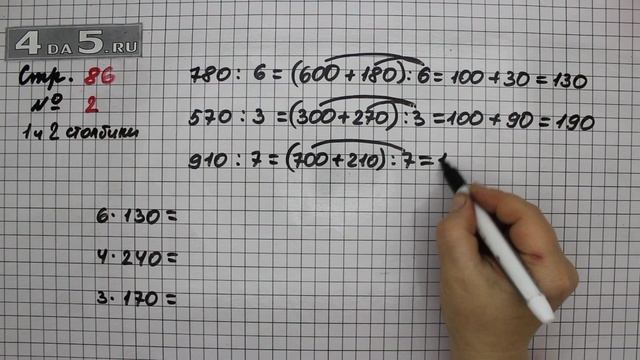 4DA5.RU
Стр. 86
№ 2
1 и 2 столбики
780 : 6 = (600 + 180) : 6 = 100 + 30 = 130
570 : 3 = (300 + 270) : 3 = 100 + 90 = 190
910 : 7 = (700 + 210) : 7 = 1
6 · 130 =
4 · 240 =
3 · 170 =